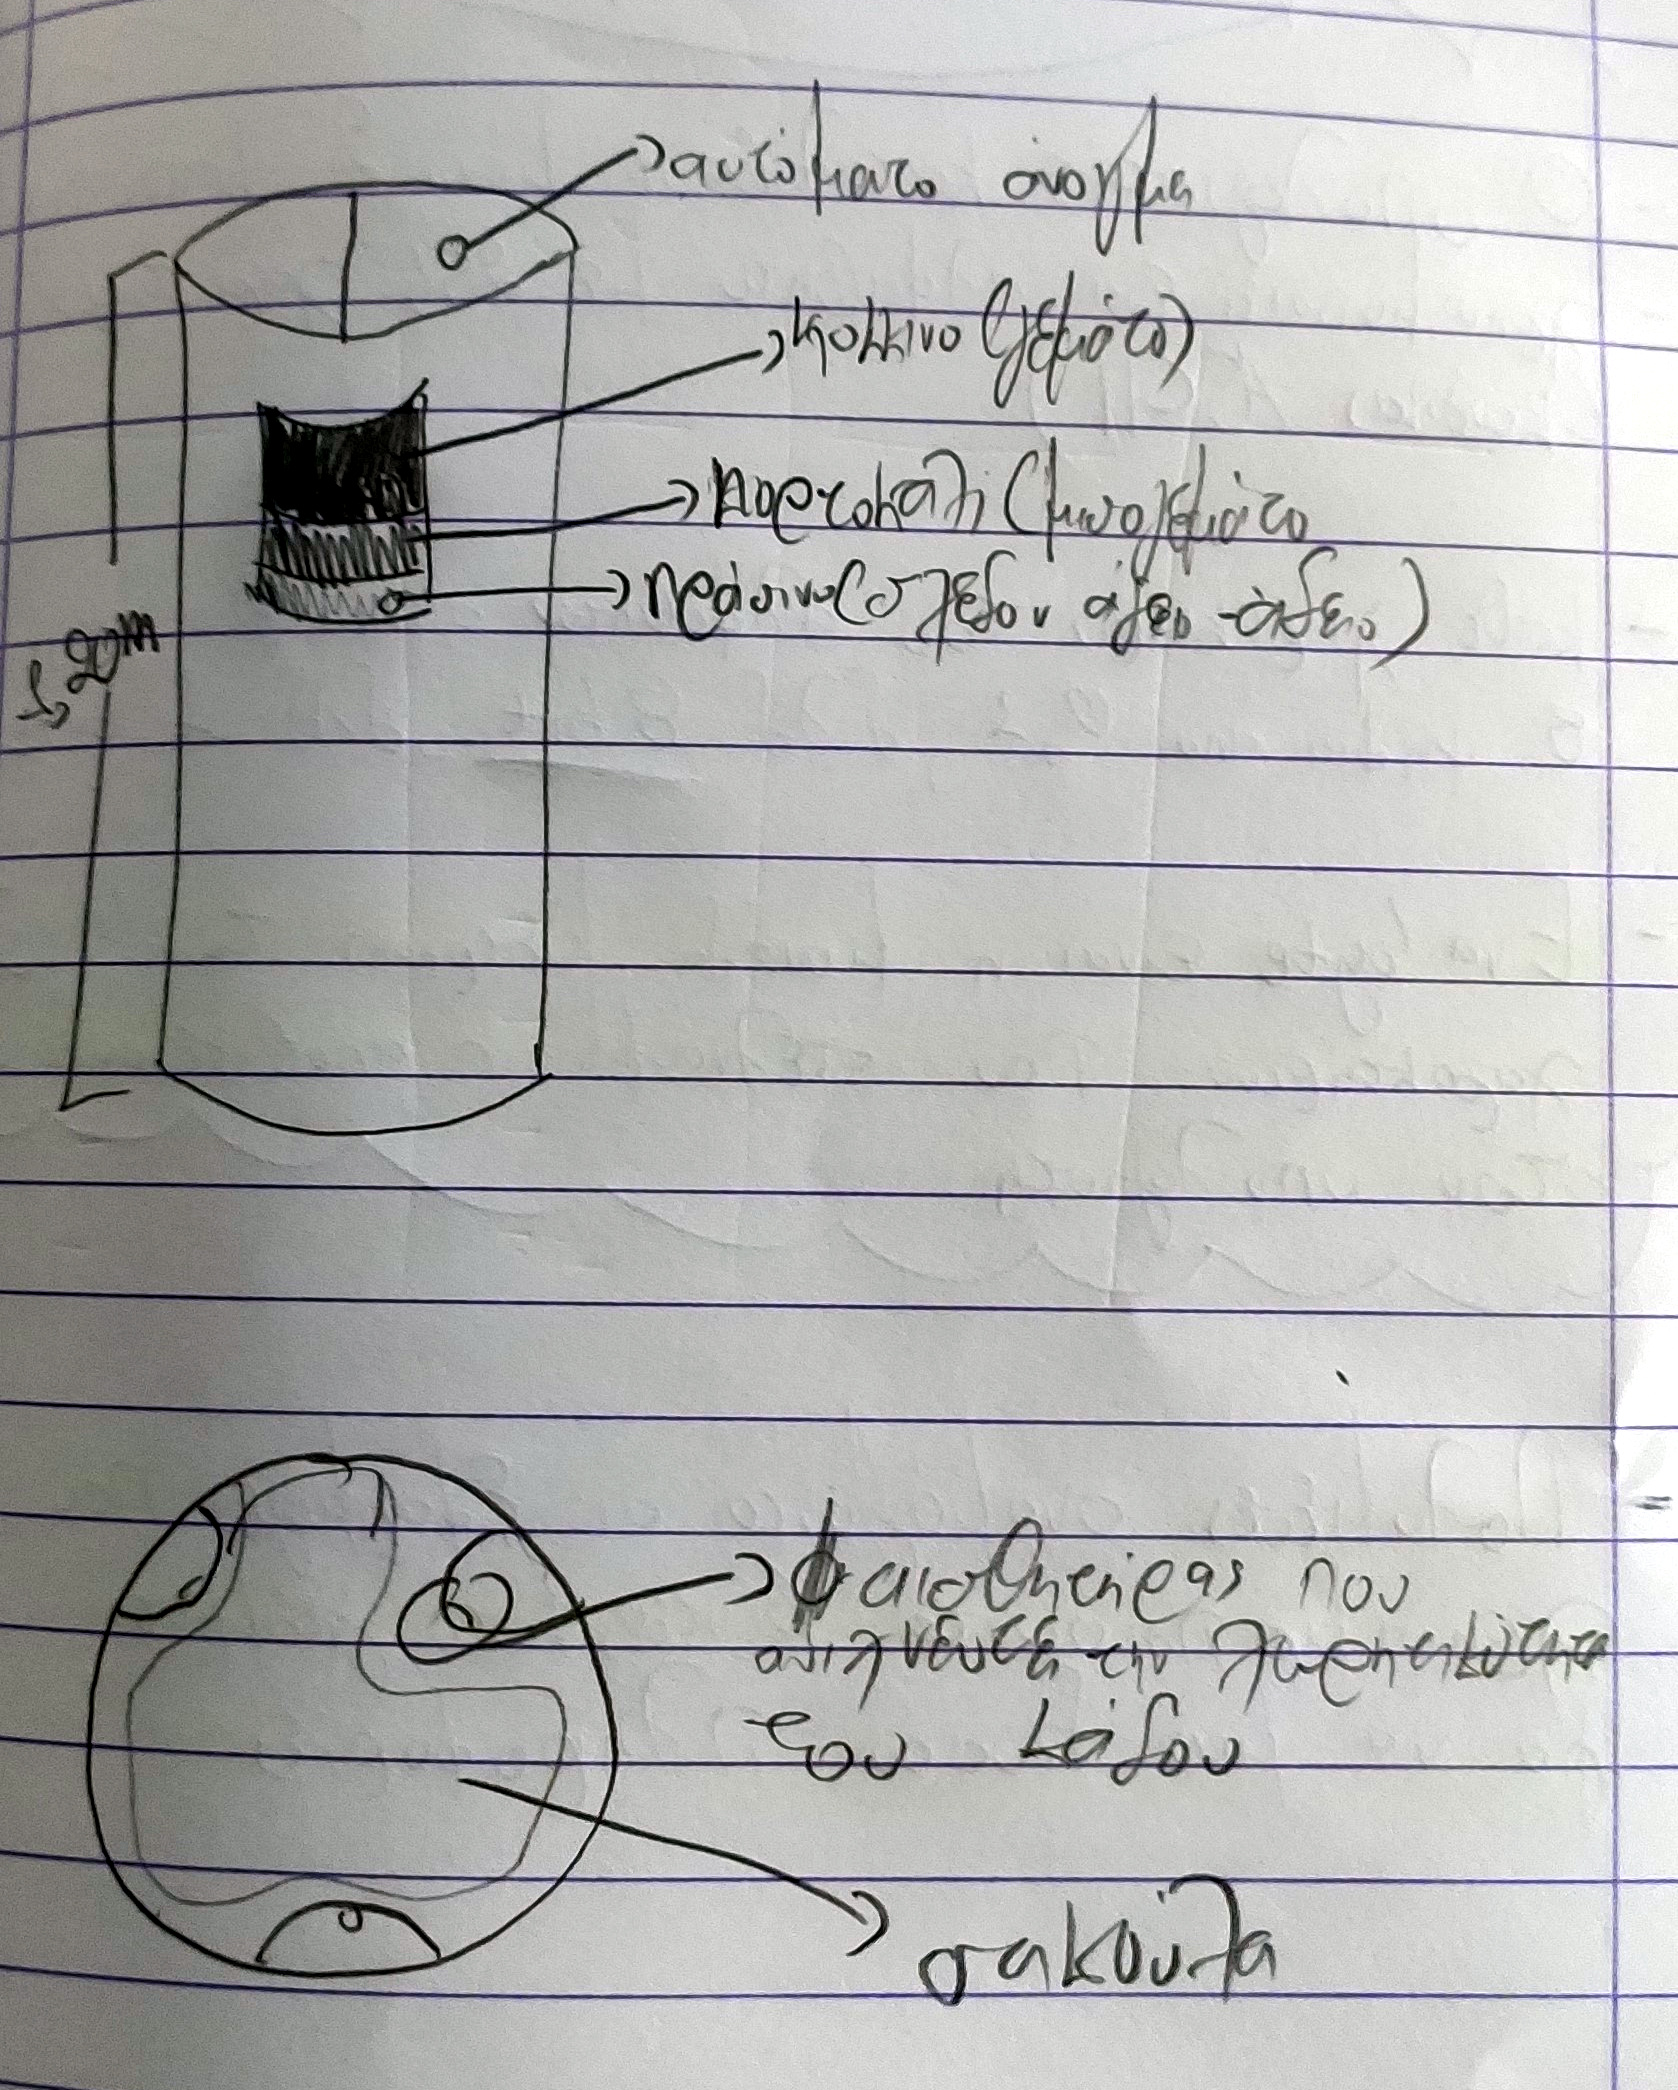 αυτόματο άνοιγμα
κόκκινο (γεμάτο)
πορτοκαλι (μισογεμάτο
πράσινο (σχεδον άδειο - άδειο)
20m
αισθητήρας που
ανιχνεύσει την χωρητικότητα
του κάδου
σακούλα